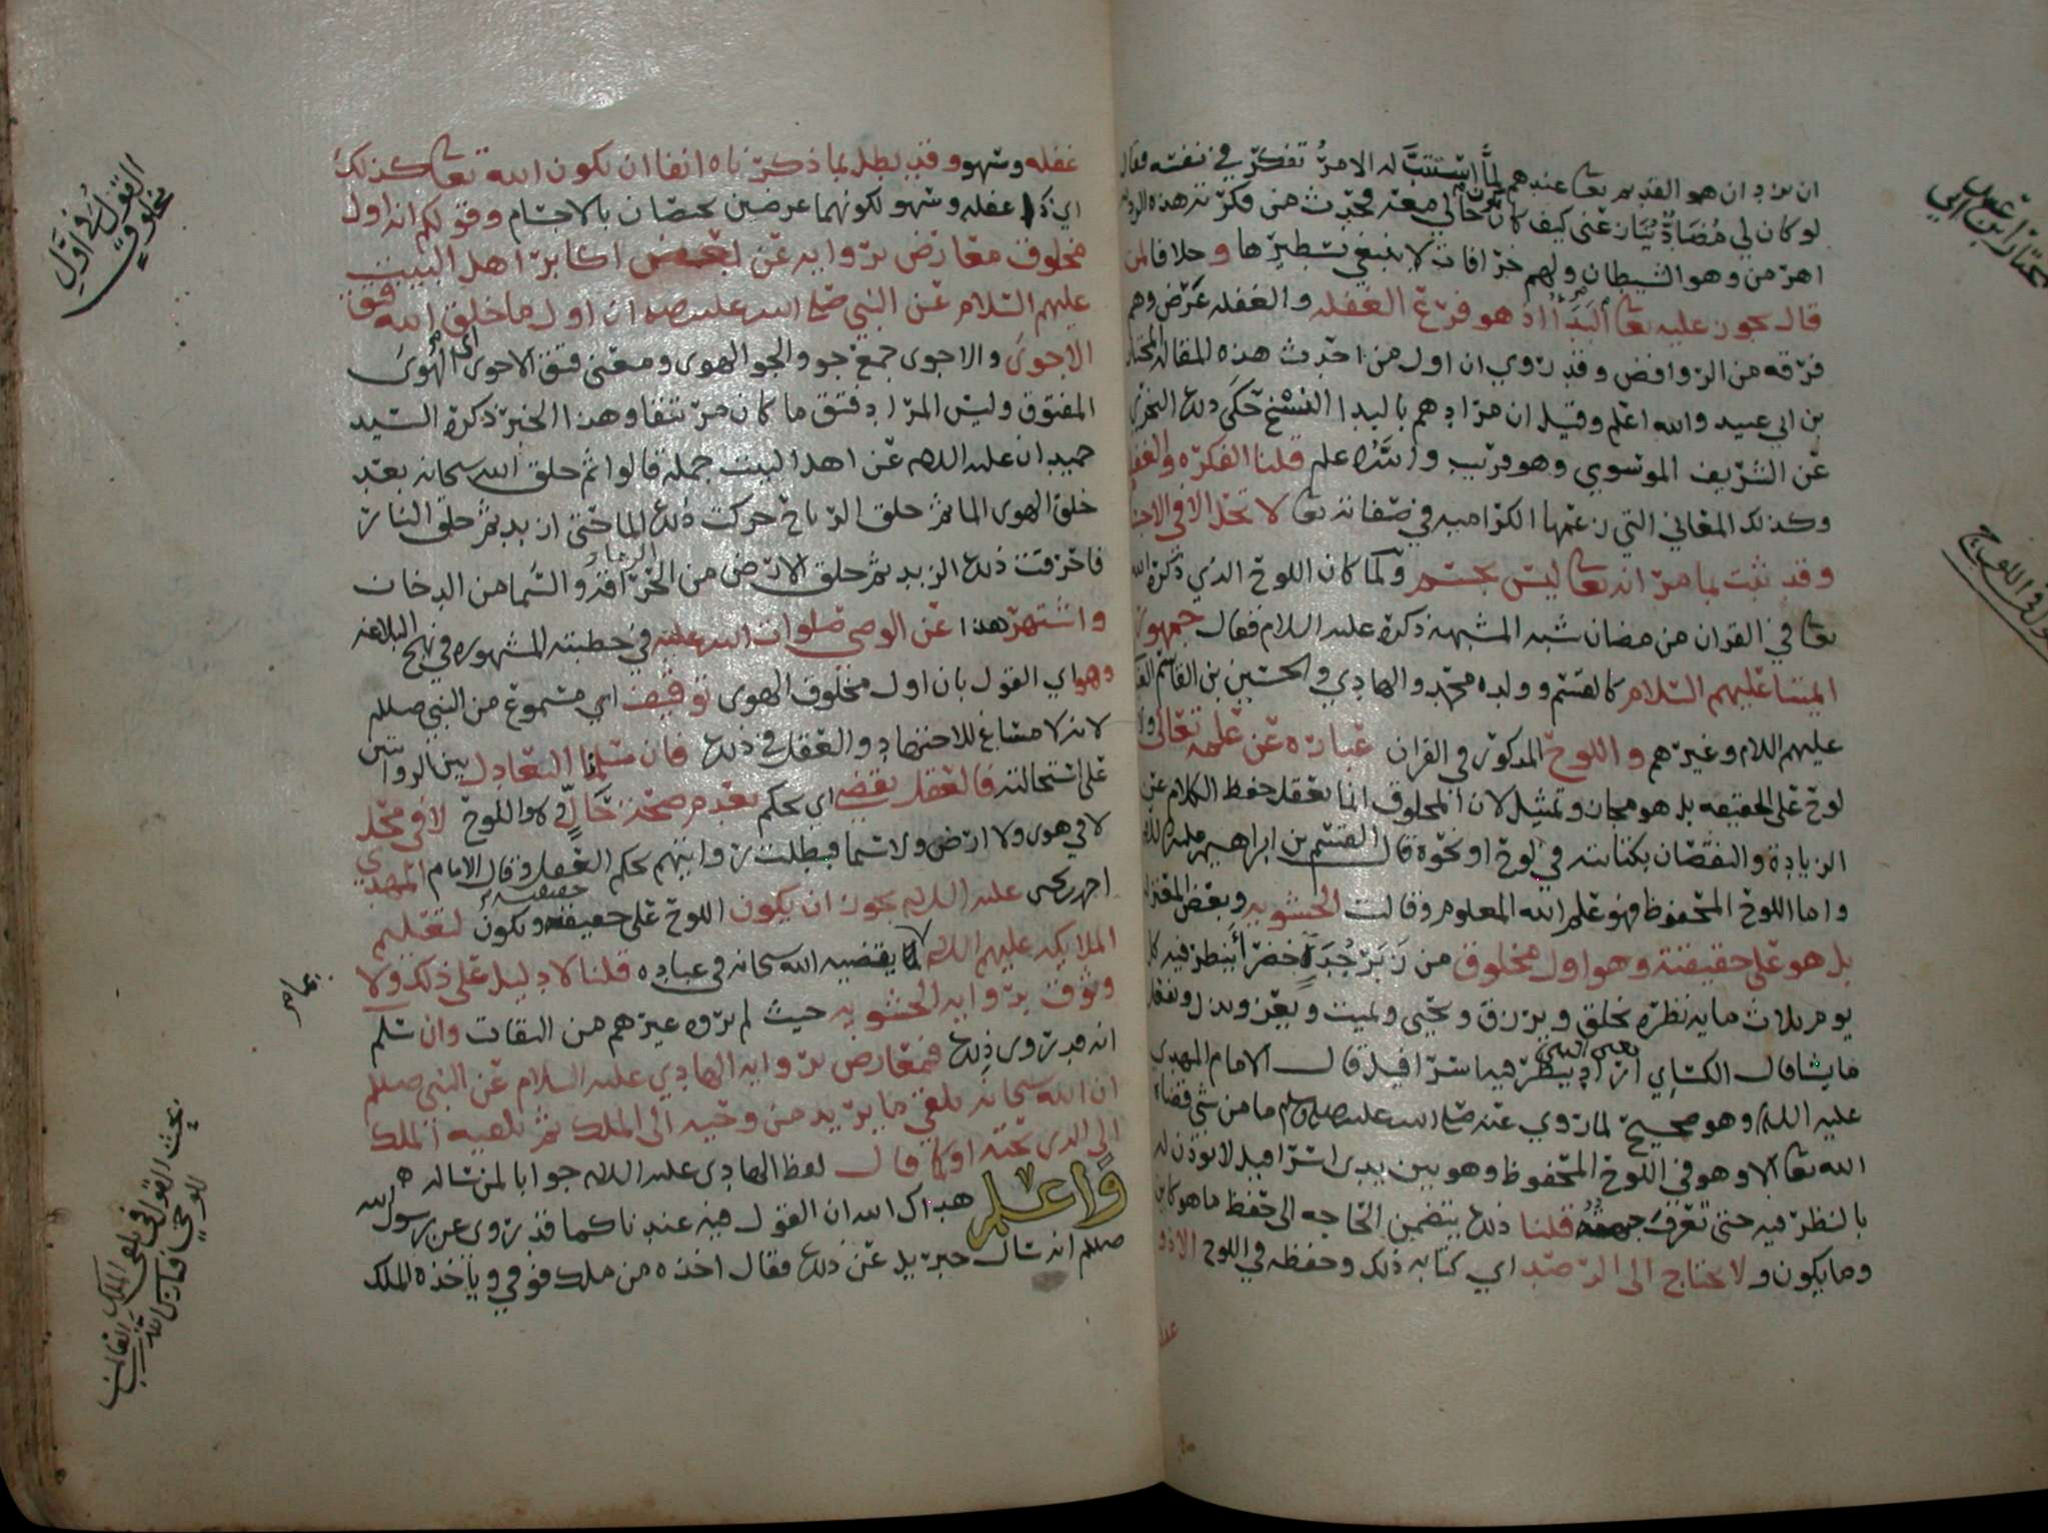 ان يزدان هو القديم تعا عندهم لما استتب له الامر تفكر في نفسه فقال
لو كان لي مضاد ينازعني كيف كان يكون حالي معه فحدث من فكرته هذه
اهرمن وهو الشيطان ولهم خرافات لا ينبغي تسطيرها وخلافا لمن
قال يجوز عليه تعا البدأ اذ هو فرع الغفله والغفله عرض وهم
فرقه من الروافض وقد روي ان اول من احدث هذه المقاله المختار
بن ابي عبيد والله اعلم وقيل ان مرادهم بالبدا النسخ حكى ذلك النجري
عن الشريف الموسوي وهو قريب والله اعلم قلنا الفكره والغفله
وكذلك المعاني التي زعمها الكراميه في صفاته تعا لا تحل الا في الاجسام
وقد ثبت بما مر انه تعا ليس بجسم ولما كان اللوح الذي ذكره الله
تعا في القران من مضان شبه المشبهه ذكره عليه السلام فقال جمهور
ايمتنا عليهم السلام كالقسم وولده محمد والهادي والحسين بن القاسم
عليهم السلام وغيرهم واللوح المذكور في القران عبارة عن علمه تعالى ولا
لوح على الحقيقه بل هو مجاز وتمثيل لان المخلوق انما يعقل حفظ الكلام عن
الزيادة والنقصان بكتابته في لوح او نحوه قال القسم بن ابراهيم عليه السلام
واما اللوح المحفوظ فهو علم الله المعلوم وقالت الحشويه وبعض المعتزله
بل هو على حقيقته وهو اول مخلوق من زبرجدة خضرا ينظر فيه كل
يوم ثلاث مايه نظره يخلق ويرزق ويحيي ويميت ويعز ويذل ويفعل
ما يشا قال الكسايي اراد ينظر فيه اسرافيل قال الامام المهدي
عليه السلام وهو صحيح لما روي عنه صلى الله عليه واله وسلم ما من شي قضاه
الله تعا الا وهو في اللوح المحفوظ وهو بين يدي اسرافيل لا يوذن له
بالنظر فيه حتى تعرق جبهته قلنا ذلك يتضمن الحاجه الى حفظ ما هو كاين
وما يكون ولا يحتاج الى الرصد اي كتابه ذلك وحفظه في اللوح الا ذو
غفله
غفله وسهو وقد بطل بما ذكرناه انفا ان يكون الله تعا كذلك
اي ذا غفله وسهو لكونهما عرضين يختصان بالاجسام وقولكم انه اول
مخلوق معارض بروايه عن بعض اكابر اهل البيت
عليهم السلام عن النبي صلى الله عليه واله ان اول ما خلق الله فتق
الاجوى والاجوى جمع جو والجو الهوى ومعنى فتق الاجوى اي الهوى
المفتوق وليس المراد فتق ما كان مرتتقا وهذا الخبر ذكره السيد
حميدان عليه السلام عن اهل البيت جمله قالوا ثم خلق الله سبحانه بعد
خلق الهوى الما ثم خلق الرياح حركت ذلك الما حتى ازبد ثم خلق النار
فاحرقت ذلك الزبد ثم خلق الارض من الحراقه والسما من الدخان
واشتهر هذا عن الوصي صلوات الله عليه في خطبته المشهوره في نهج البلاغه
وهو اي القول بان اول مخلوق الهوى توقيف اي مسموع من النبي صللم
لانه لا مساغ للاجتهاد والعقل في ذلك فان سلمنا التعادل بين الروايتين
فالعقل يقضي اي يحكم بعدم صحة حال كاللوح لا في محل على استحالته
لا في هوى ولا ارض ولا سما فبطلت روايتهم بحكم العقل وقال الامام المهدي
احمد بن يحيى عليه السلام يجوز ان يكون اللوح على حقيقته ويكون لتعليم
الملايكه عليهم السلام لما يقضيه الله سبحانه في عباده قلنا لا دليل على ذلك ولا
وثوق بروايه الحشويه حيث لم يروه غيرهم من الثقات وان سلم
انه قد روى ذلك فمعارض بروايه الهادي عليه السلام عن النبي صللم
ان الله سبحانه يلقي ما يريد من وحيه الى الملك ثم يلقيه الملك
الى الذي تحته او كما قال لفظ الهادي عليه السلام جوابا لمن ساله
واعلم هداك الله ان القول فيه عندنا كما قد روى عن رسول الله
صللم انه سال جبريل عن ذلك فقال اخذه من ملك فوقي وياخذه الملك
القول في اول
مخلوق
بحث القول في تلقي الملك
للوحي